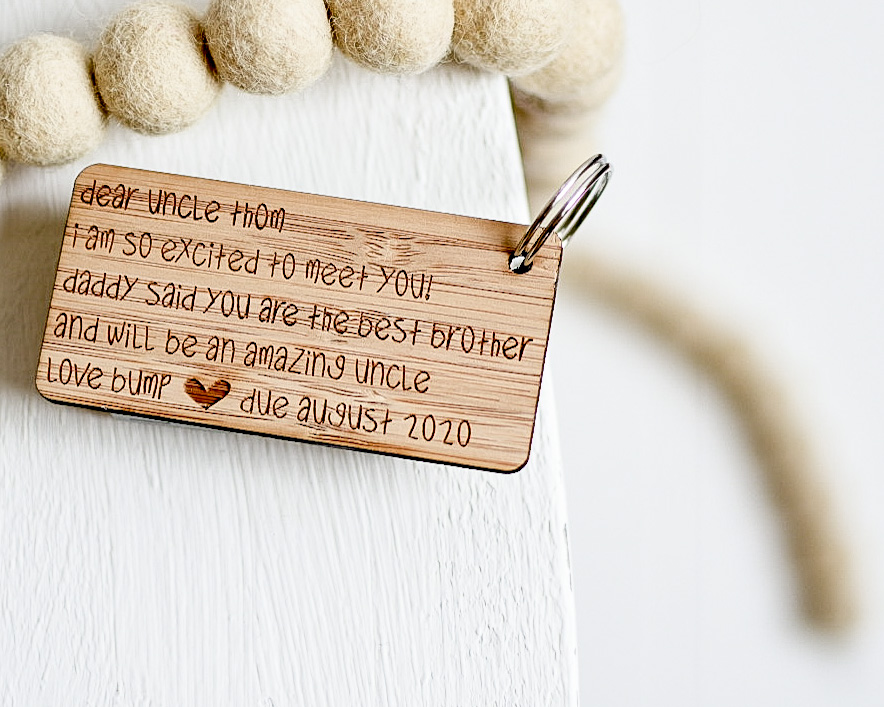 dear uncle thom
i am so excited to meet you!
daddy said you are the best brother
and will be an amazing uncle
love bump ♥ due august 2020